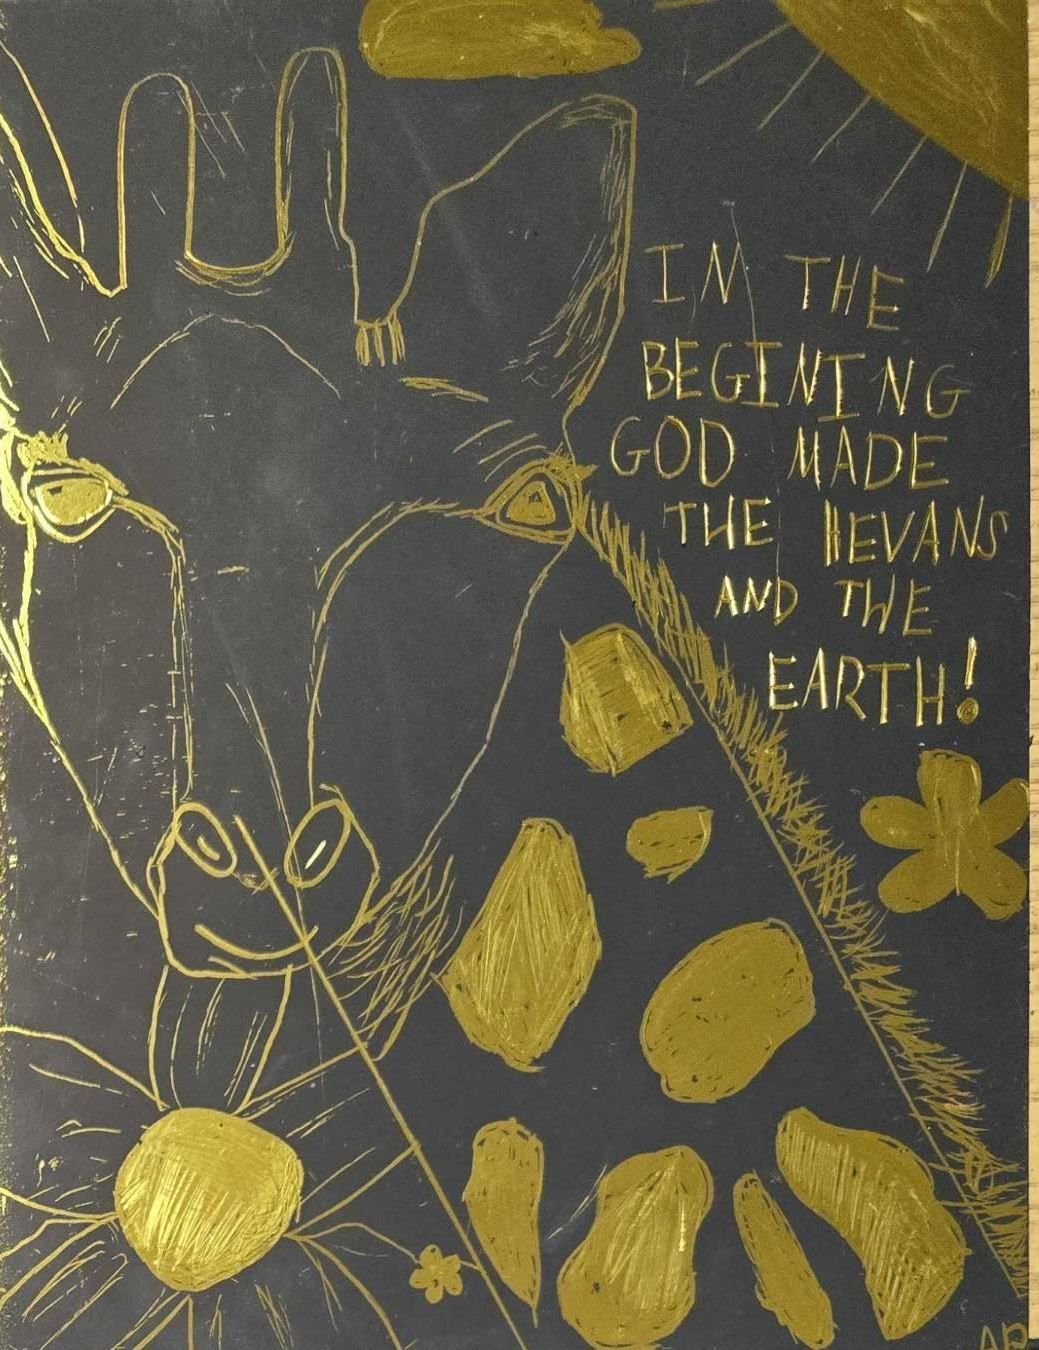 IN THE
BEGINING
GOD MADE
THE HEVANS
AND THE
EARTH!